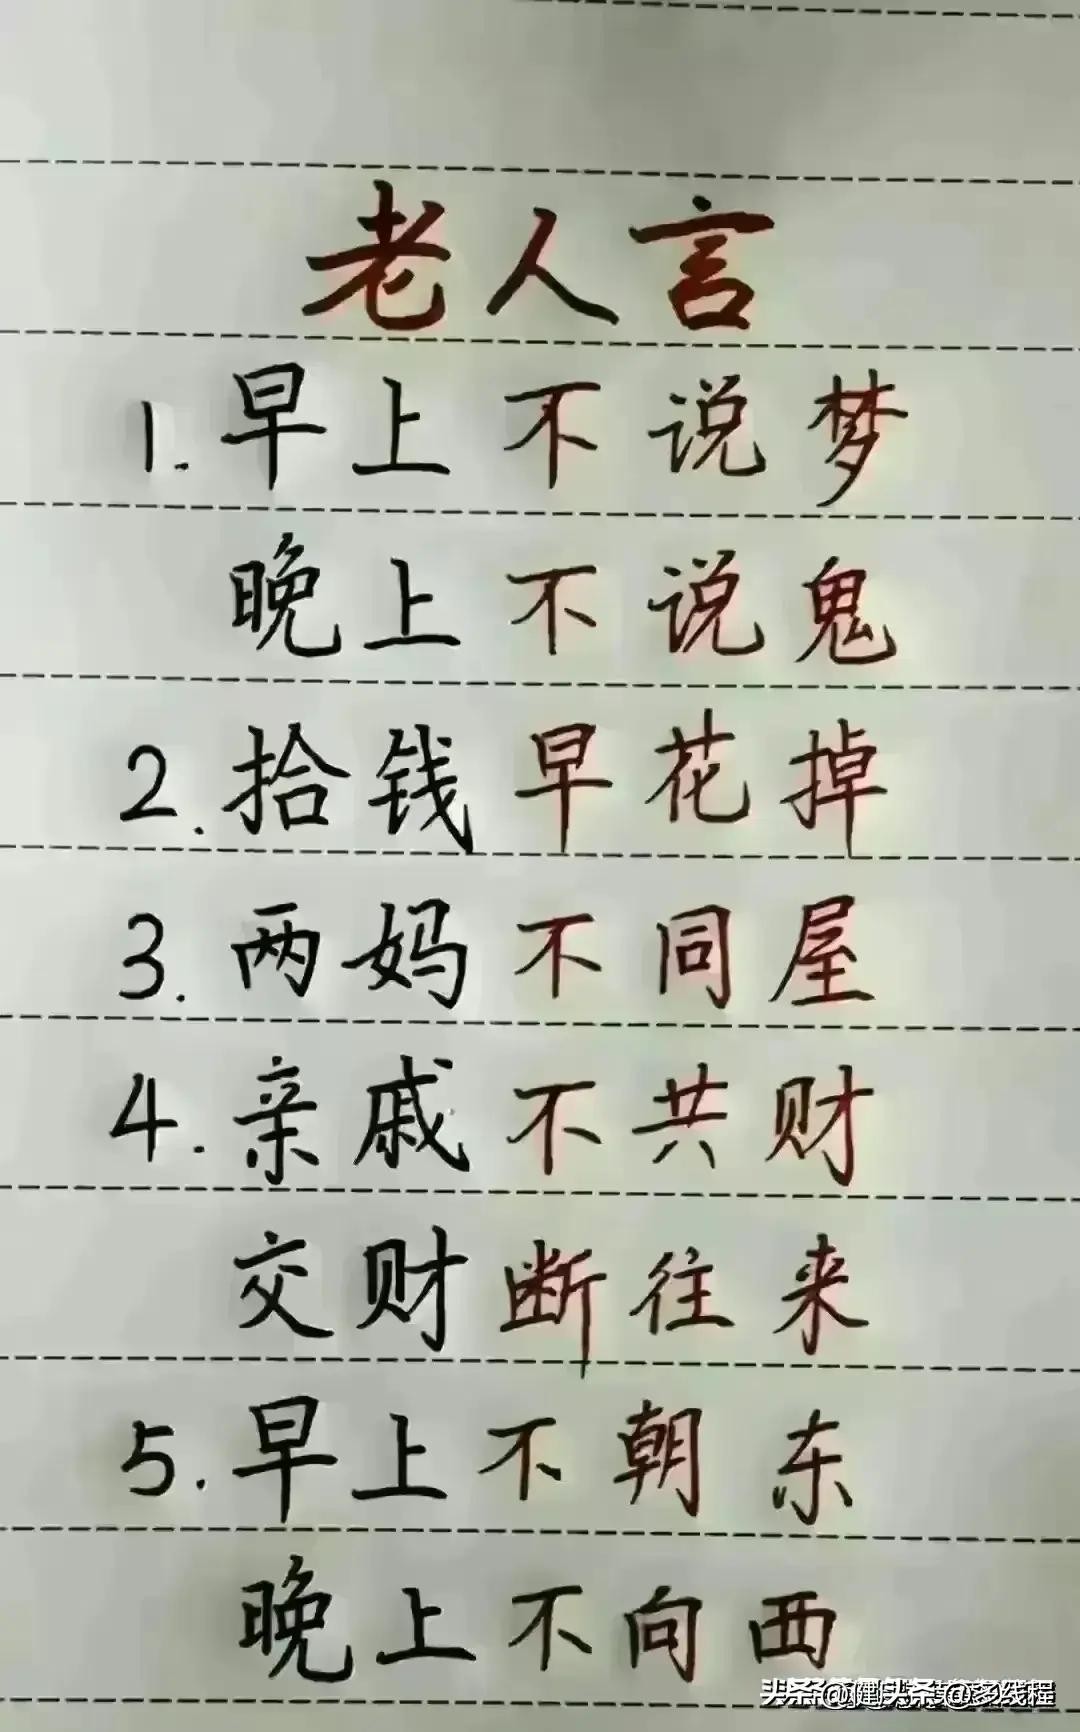 老人言
1.早上不说梦
晚上不说鬼
2.拾钱早花掉
3.两妈不同屋
4.亲戚不共财
交财断往来
5.早上不朝东
晚上不向西
头条@多线程